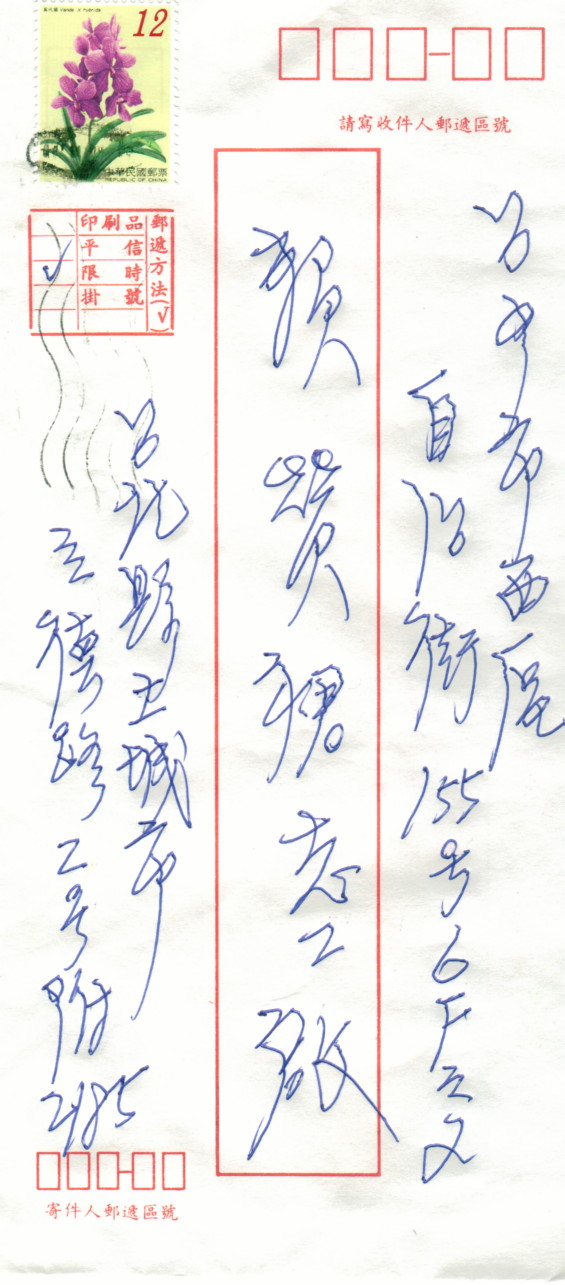 12
中華民國郵票
REPUBLIC OF CHINA
請寫收件人郵遞區號
台中市西區
自治街155号6F之
賴
穗志工啟
郵遞方法(√)
印刷品
平信
限時
掛號
√
台北縣土城市
立德路2号附
寄件人郵遞區號